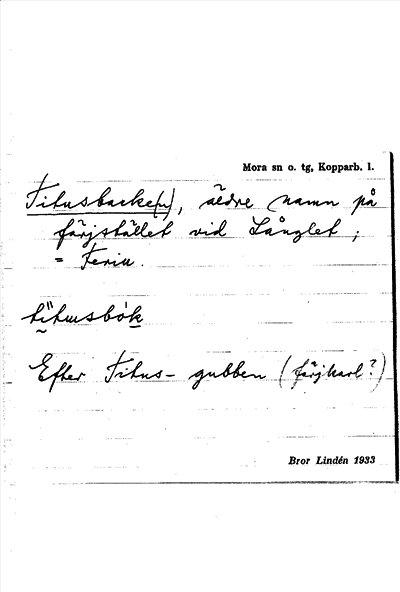 Mora sn o. tg, Kopparb. l.
Titusbacke(n), äldre namn på
färjstället vid Långlet ;
= Ferin.
Efter Titus-gubben (färjkarl?)
Bror Lindén 1933